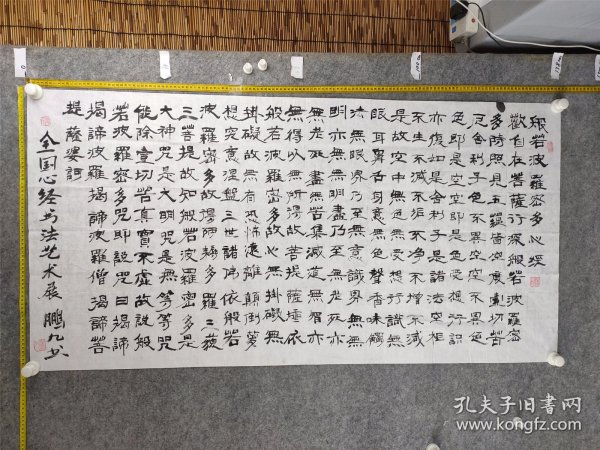 般若波羅密多心經
觀自在菩薩行深般若波羅密
多時照見五蘊皆空度一切苦
厄舍利子色不異空空不異色
色即是空空即是色受想行識
亦復如是舍利子是諸法空相
不生不滅不垢不淨不增不減
是故空中無色無受想行識無
眼耳鼻舌身意無色聲香味觸
法無眼界乃至無意識界無無
明亦無無明盡乃至無老死亦
無老死盡無苦集滅道無智亦
無得以無所得故菩提薩埵依
般若波羅密多故心無掛礙無
掛礙故無有恐怖遠離顛倒夢
想究竟涅盤三世諸佛依般若
波羅密多故得阿耨多羅三藐
三菩提故知般若波羅密多是
大神咒是大明咒是無等等咒
能除一切苦真實不虛故說般
若波羅密多咒即說咒曰揭諦
揭諦波羅揭諦波羅僧揭諦菩
提薩婆訶
全国心经书法艺术展 鵬九书
孔夫子旧书网
www.kongfz.com